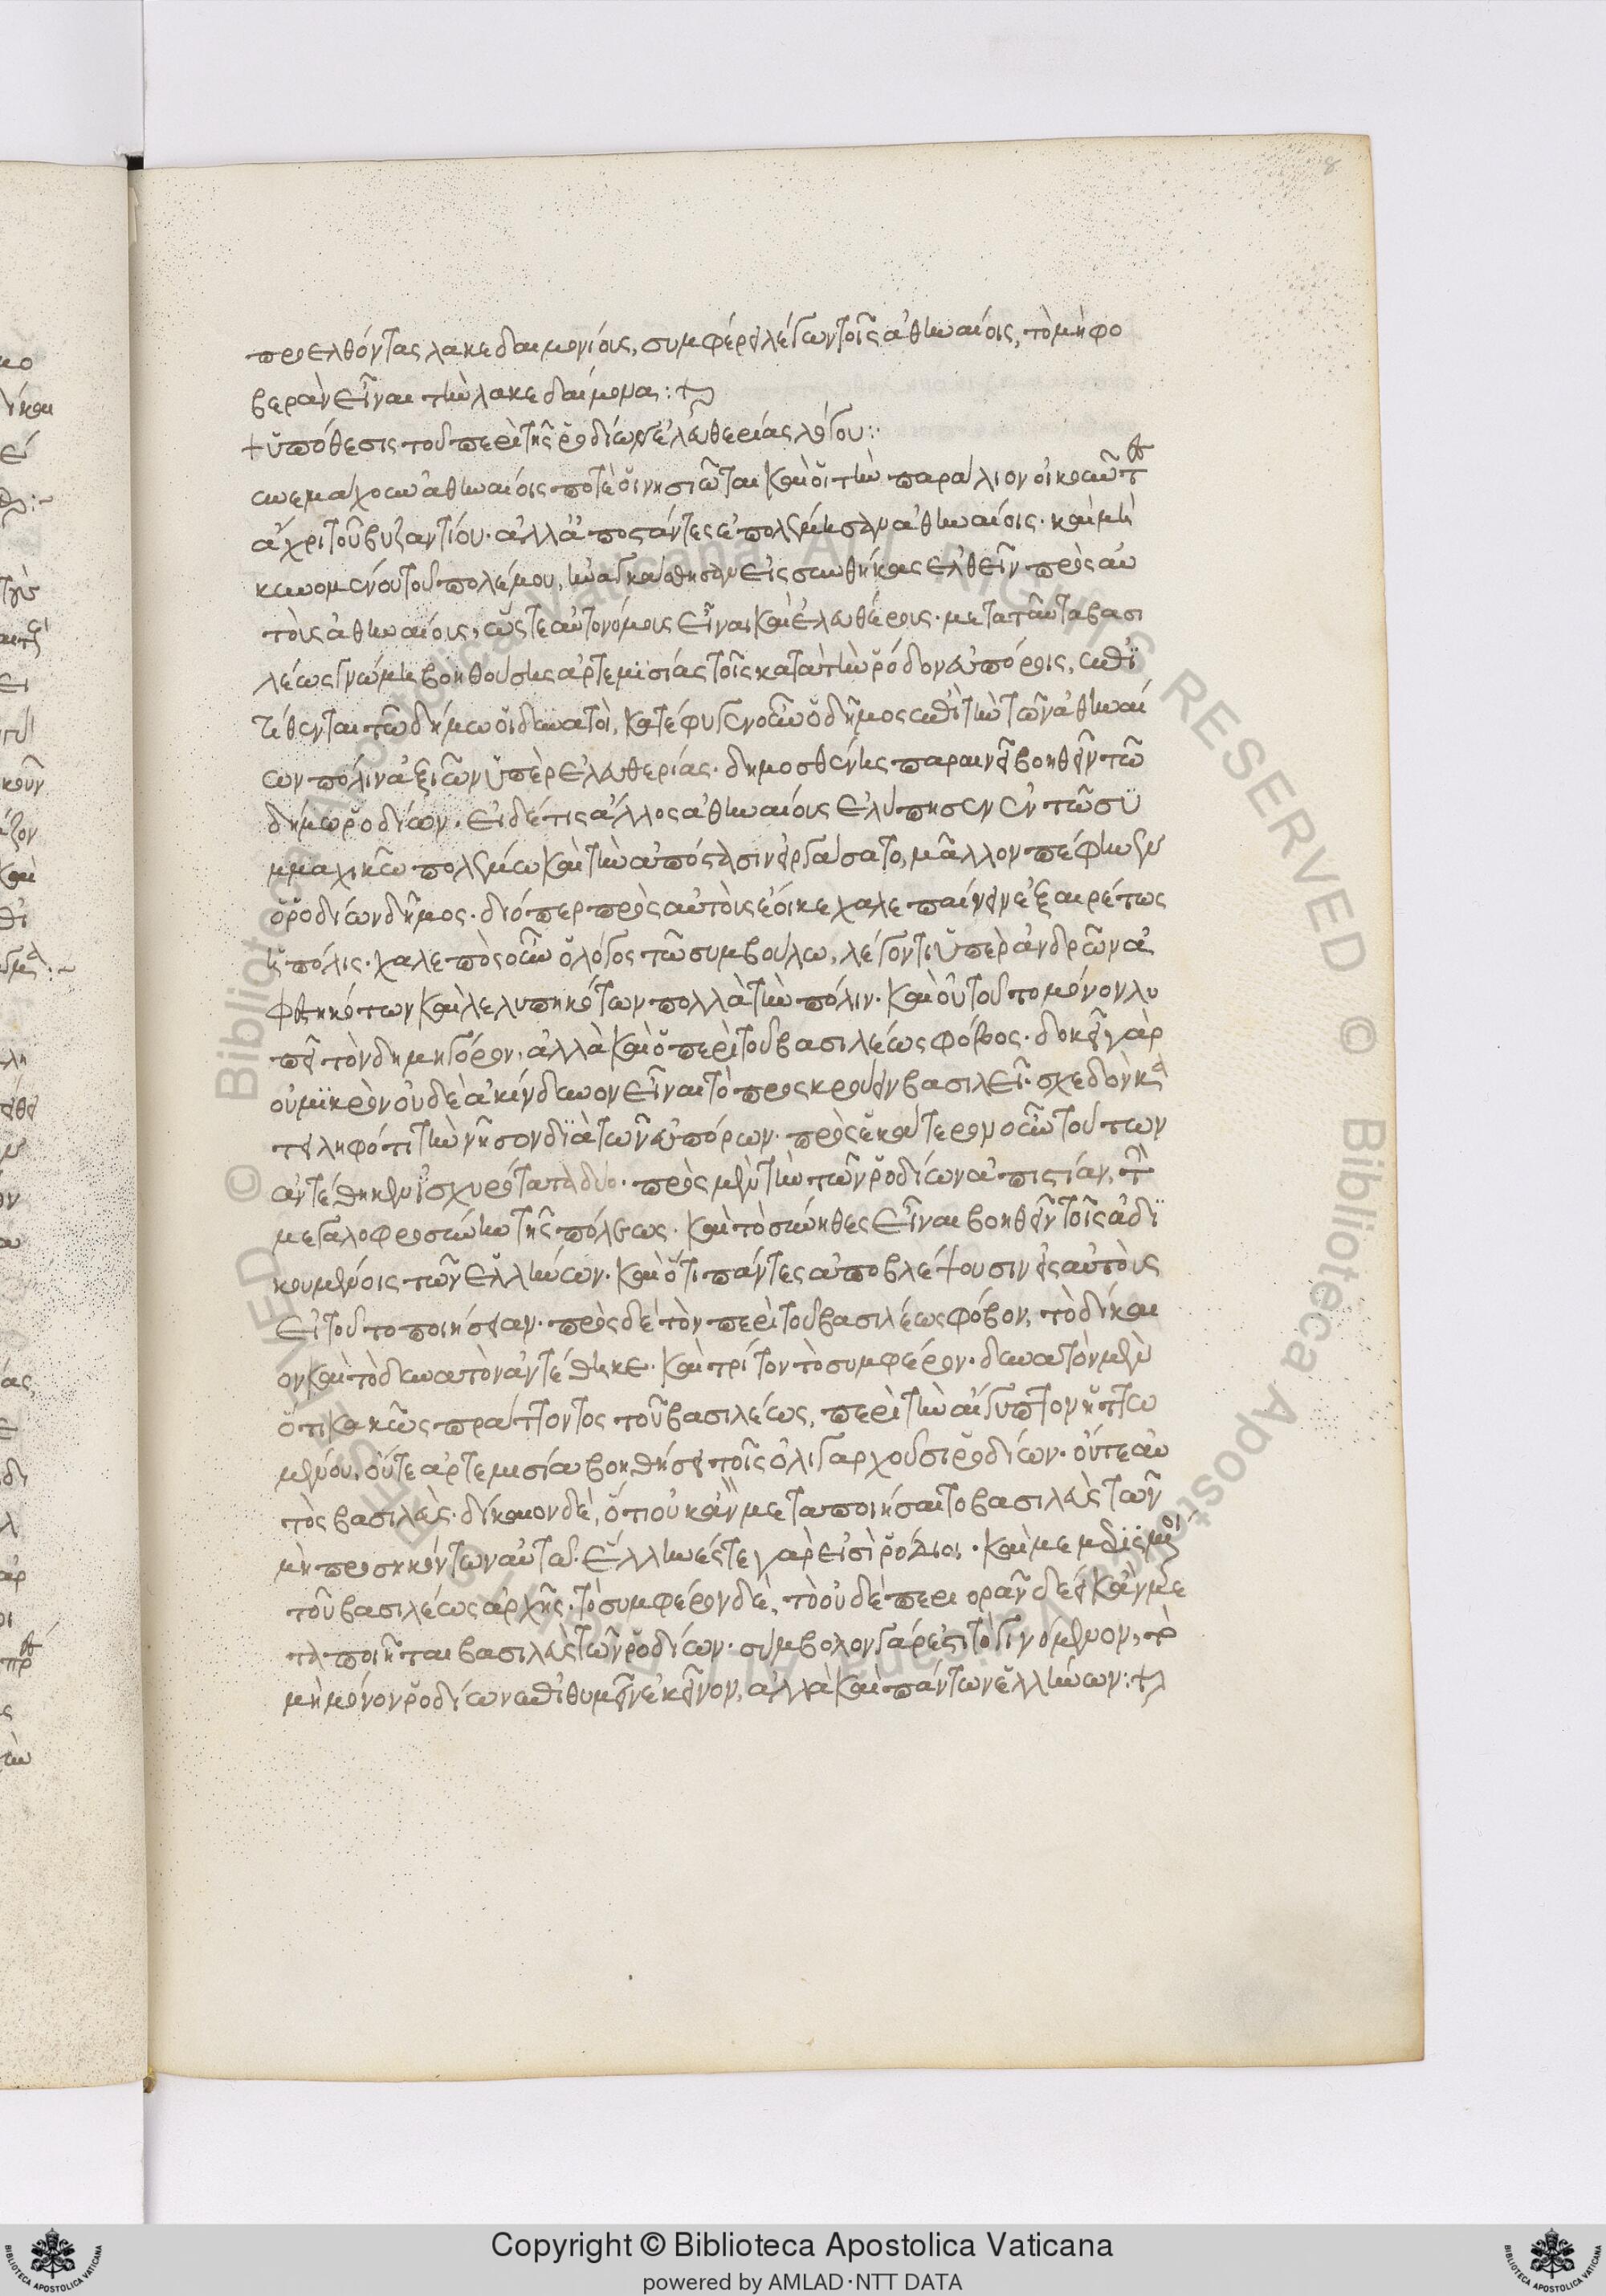 8
προελθόντας λακεδαιμονίους, συμφέρει λέγων τοῖς ἀθηναίοις, τὸ μὴ φο
βερὰν εἶναι τὴν λακεδαίμονα:
+ ὑπόθεσις τοῦ περὶ τῆς ῥοδίων ἐλευθερίας λόγου:
συνεμάχουν ἀθηναίοις ποτὲ οἱ νησιῶται καὶ οἱ τὴν παράλιον οἰκοῦντ
ἄχρι τοῦ βυζαντίου. ἀλλ' ἀποστάντες ἐπολέμησαν ἀθηναίοις. καὶ μὴ
κινομένου τοῦ πολέμου, ἠναγκάσθησαν εἰς συνθήκας ἐλθεῖν πρὸς αὐ
τοὺς ἀθηναίους, ὥστε αὐτονόμους εἶναι καὶ ἐλευθέρους. μετὰ ταῦτα βασι
λέως γνώμη βοηθούσης ἀρτεμισίας τοῖς κατὰ τὴν ῥόδον εὐπόροις, ἐπι
τίθενται τῶ δήμω οἱ δυνατοὶ, κατέφυγεν οὖν ὁ δῆμος ἐπὶ τὴν τῶν ἀθηναί
ων πόλιν ἀξιῶν ὑπὲρ ἐλευθερίας. δημοσθένης παραινεῖ βοηθεῖν τῶ
δήμω ῥοδίων. εἰ δέ τις ἄλλος ἀθηναίους ἐλύπησεν ἐν τῶ συ
μμαχικῶ πολέμω καὶ τὴν ἀπόστασιν εἰργάσατο, μᾶλλον πέφηνεν
ὁ ῥοδίων δῆμος. διόπερ πρὸς αὐτοὺς ἔοικε χαλεπαίνειν ἐξαιρέτως
ἡ πόλις. χαλεπὸς οὖν ὁ λόγος τῶ συμβούλω, λέγοντι ὑπὲρ ἀνδρῶν ἀ
φεστηκότων καὶ λελυπηκότων πολλὰ τὴν πόλιν. καὶ οὐ τοῦτο μόνον λυ
πεῖ τὸν δημηγόρον, ἀλλὰ καὶ ὁ περὶ τοῦ βασιλέως φόβος. δοκεῖ γὰρ
οὐ μικρὸν οὐδὲ ἀκίνδυνον εἶναι τὸ προσκρούειν βασιλεῖ. σχεδὸν κα
τειληφότι τὴν νῆσον διὰ τῶν εὐπόρων. πρὸς ἑκάτερον οὖν τούτων
ἀντέθηκεν ἰσχυρότατα δύο. πρὸς μὲν τὴν τῶν ῥοδίων ἀπιστίαν, τὴν
μεγαλοφροσύνην τῆς πόλεως. καὶ τὸ σύνηθες εἶναι βοηθεῖν τοῖς ἀδι
κουμένοις τῶν ἑλλήνων. καὶ ὅτι πάντες ἀποβλέψουσιν εἰς αὐτοὺς
εἰ τοῦτο ποιήσειαν. πρὸς δὲ τὸν περὶ τοῦ βασιλέως φόβον, τὸ δίκαι
ον καὶ τὸ δυνατὸν ἀντέθηκε. καὶ τρίτον τὸ συμφέρον. δυνατὸν μὲν
ὅτι κακῶς πράττοντος τοῦ βασιλέως, περὶ τὴν αἴγυπτον ἡττω
μένου, οὔτε ἀρτεμισία βοηθήσει τοῖς ὀλιγαρχοῦσι ῥοδίων. οὔτε αὐ
τὸς βασιλεύς. δίκαιον δὲ, ὅτι οὐκ ἂν μεταποιήσαιτο βασιλεὺς τῶν
μὴ προσηκόντων αὐτῶ. ἕλληνές τε γάρ εἰσὶ ῥόδιοι. καὶ μεμερισμένοι
τοῦ βασιλέως ἀρχῆς. τὸ συμφέρον δὲ, τὸ οὐδὲ περιορᾶν δεῖ κἂν με
ταποιῆται βασιλεὺς τῶν ῥοδίων. σύμβολον γάρ ἐστι τὸ γινόμενον, τοῦ
μὴ μόνον ῥοδίων ἐπιθυμεῖν ἐκεῖνον, ἀλλὰ καὶ πάντων ἑλλήνων:
Copyright © Biblioteca Apostolica Vaticana
powered by AMLAD·NTT DATA